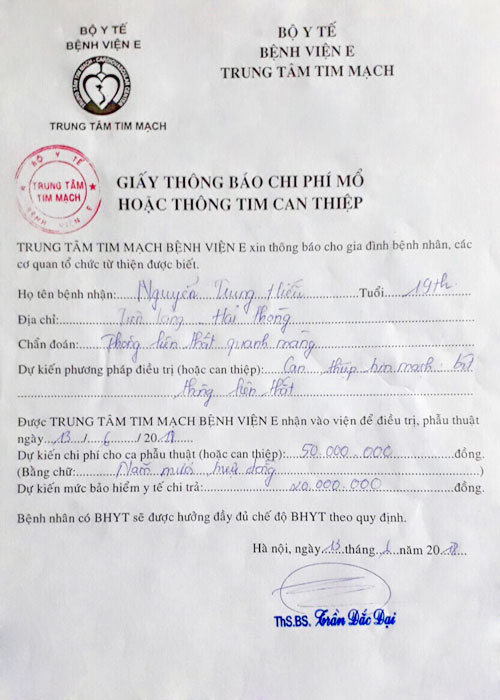 BỘ Y TẾ
BỆNH VIỆN E
TRUNG TÂM TIM MẠCH - CARDIOVASCULAR CENTER
TRUNG TÂM TIM MẠCH
BỘ Y TẾ
BỆNH VIỆN E
TRUNG TÂM TIM MẠCH
BỘ Y TẾ
TRUNG TÂM
TIM MẠCH
BỆNH VIỆN E
GIẤY THÔNG BÁO CHI PHÍ MỔ
HOẶC THÔNG TIM CAN THIỆP
TRUNG TÂM TIM MẠCH BỆNH VIỆN E xin thông báo cho gia đình bệnh nhân, các
cơ quan tổ chức từ thiện được biết.
Họ tên bệnh nhân: Nguyễn Trung Hiếu Tuổi 19th
Địa chỉ: Tiên Lãng Hải Phòng
Chẩn đoán: Thông liên thất quanh màng
Dự kiến phương pháp điều trị (hoặc can thiệp): Can thiệp tim mạch bít
thông liên thất
Được TRUNG TÂM TIM MẠCH BỆNH VIỆN E nhận vào viện để điều trị, phẫu thuật
ngày 13 / 6 / 2018
Dự kiến chi phí cho ca phẫu thuật (hoặc can thiệp): 50.000.000 đồng.
(Bằng chữ: Năm mươi triệu đồng )
Dự kiến mức bảo hiểm y tế chi trả: 20.000.000 đồng.
Bệnh nhân có BHYT sẽ được hưởng đầy đủ chế độ BHYT theo quy định.
Hà nội, ngày 13 tháng 6 năm 2018
ThS.BS. Trần Đắc Đại